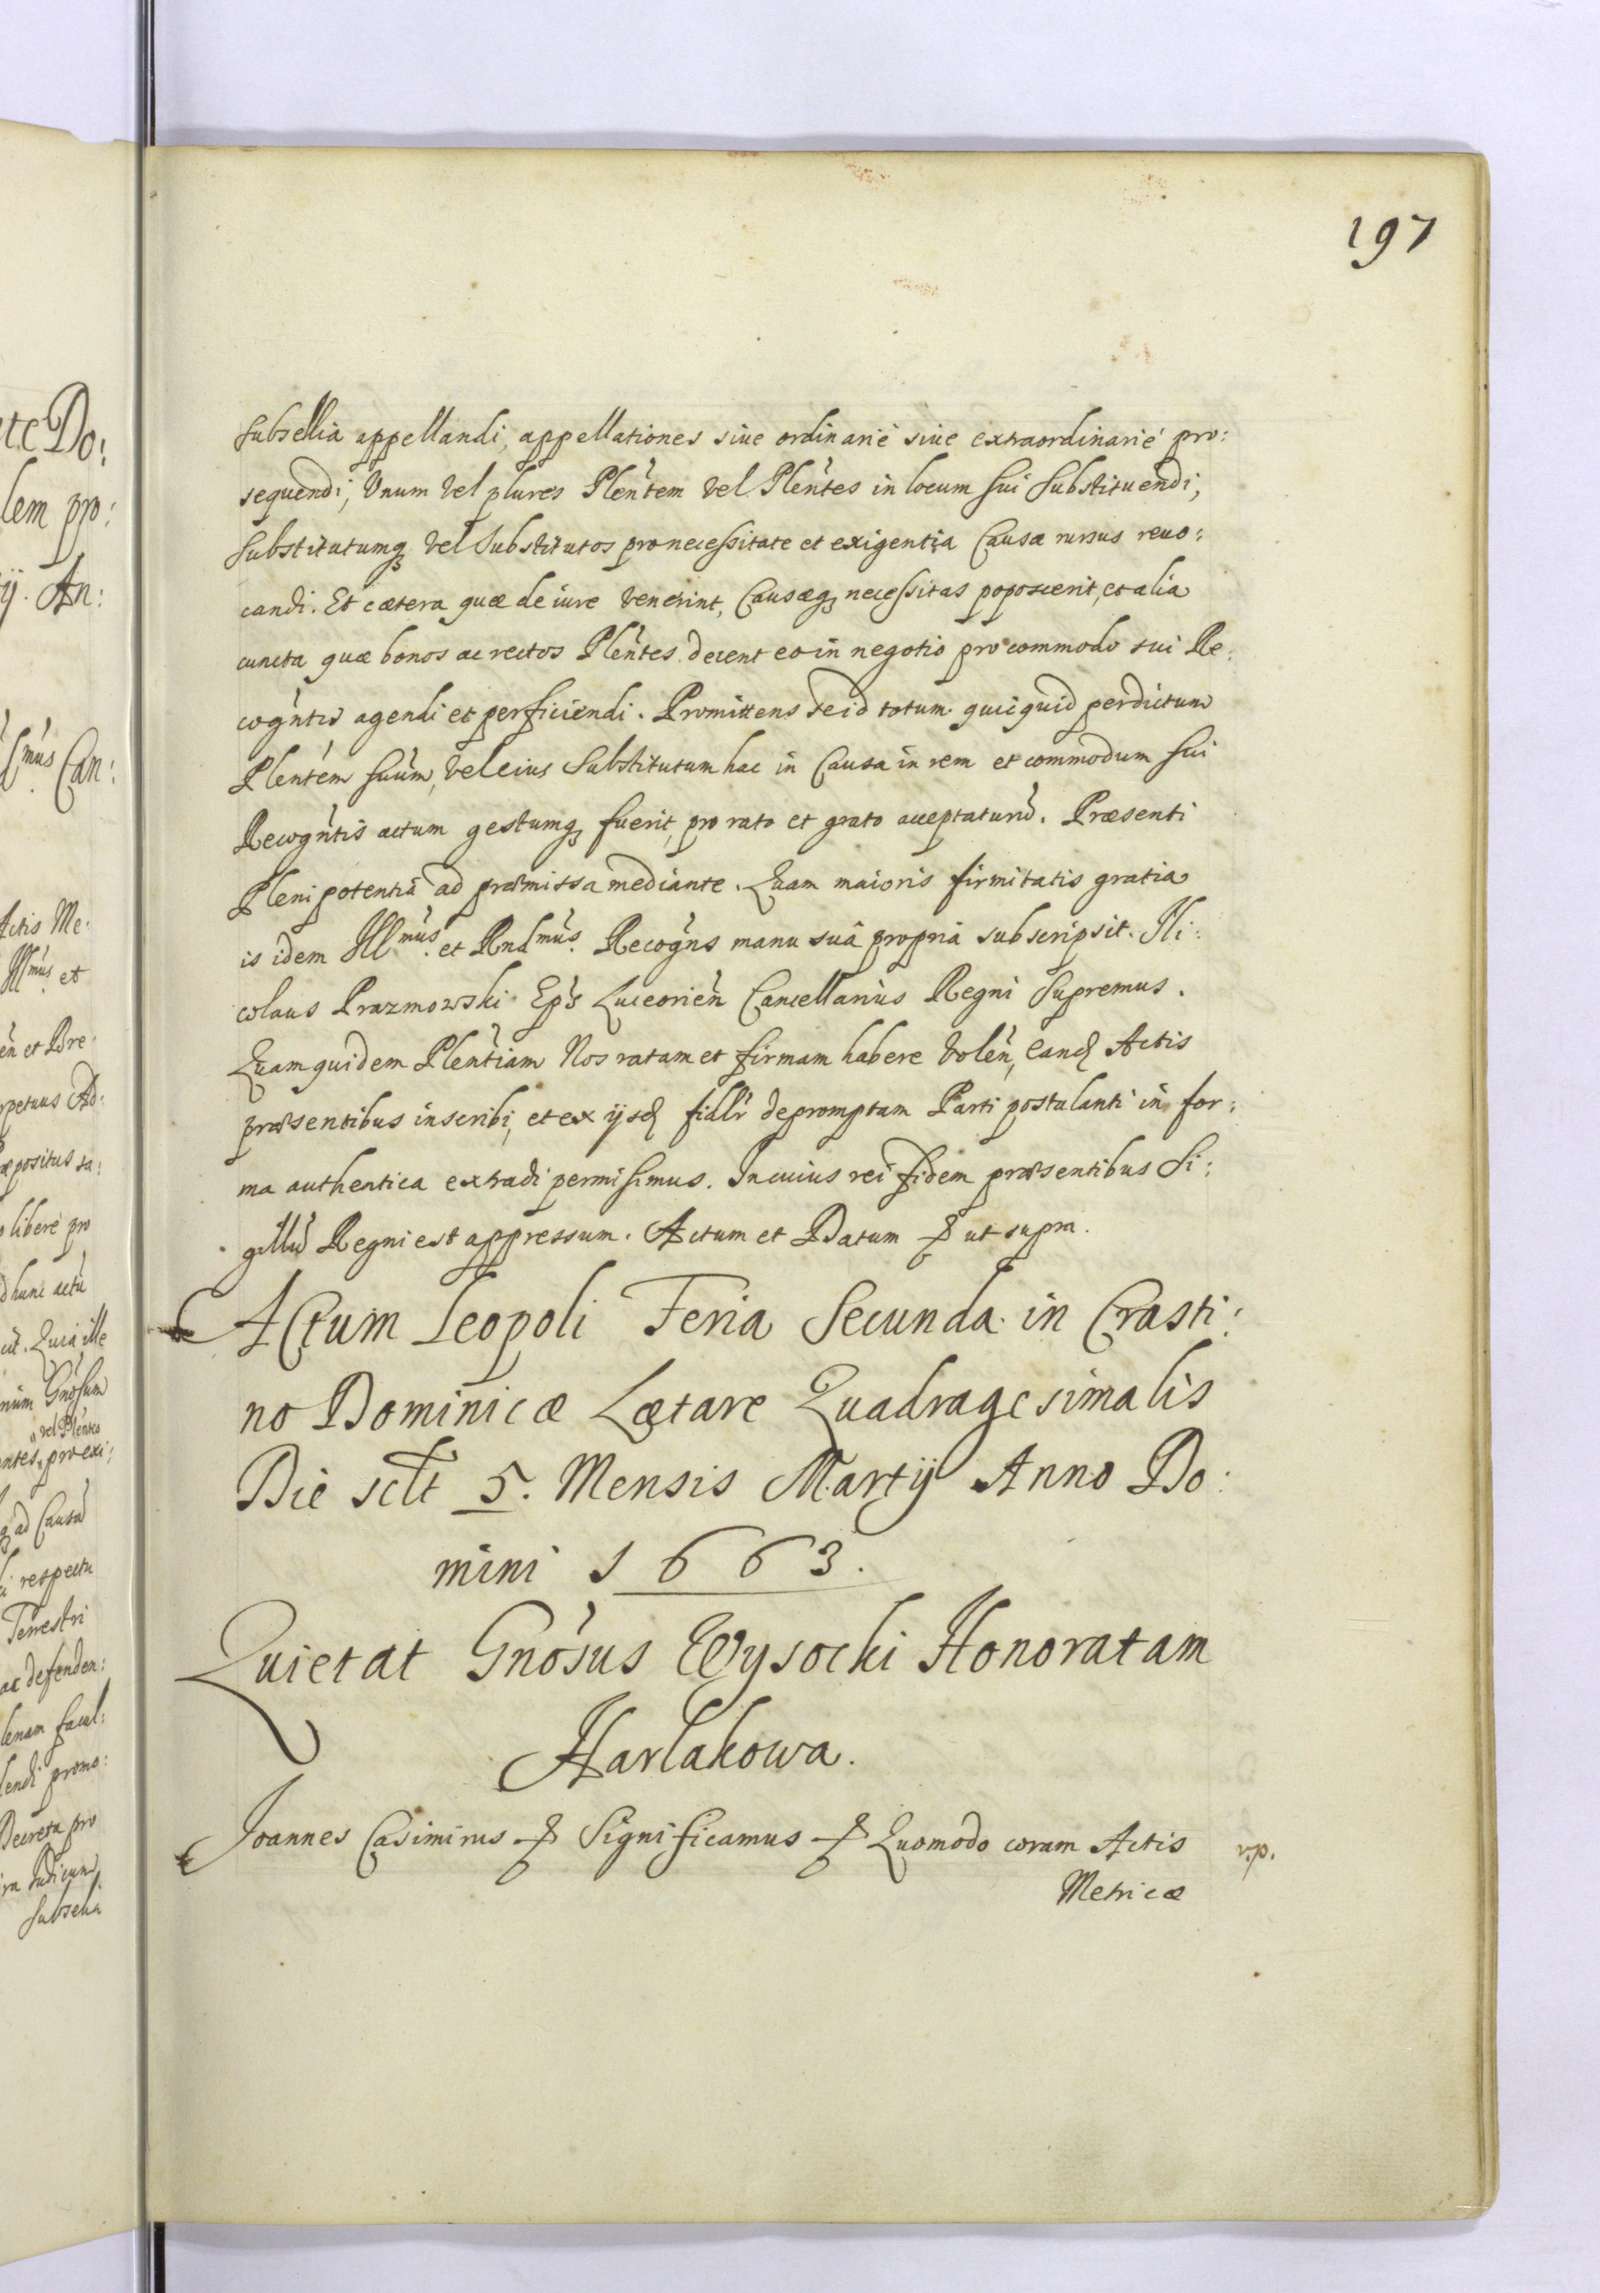 197
subsellia appellandi, appellationes siue ordinarié siue extraordinarié pro:
sequendi, Vnum Vel plures Plen̄tem vel Plen̄tes in locum sui substituendi,
substitutumq₃ vel Substitutos pro necessitate et exigentia Causæ rursus reuo:
candi. Et cætera quæ de iure venerint, Causæq₃ necessitas poposcerit, et alia
cuncta quæ bonos ac rectos Plen̄tes decent eo in negotio pro commodo sui Re:
cogn̄tis agendi et perficiendi. Promittens se id totum quicquid perdictum
Plentem suum, vel eius Substitutum hac in Causa in rem et commodum sui
Recogn̄tis actum gestumq₃ fuerit, pro rato et grato acceptaturū. Præsenti
Plenipotentiâ ad præmissa mediante. Quam maioris firmitatis gratia
is idem Illmus. et Rndmus. Recogn̄s manu suâ propriâ subscripsit. Ni:
colaus Prazmowski Ep̄s Luceorien̄ Cancellarius Regni Supremus.
Quam quidem Plen̄tiam Nos ratam et firmam habere Volen̄, eand Actis
præsentibus inscribi, et ex ijsd fidlr̄ depromptam Parti postulanti in for:
ma authentica extradi permisimus. In cuius rei fidem præsentibus Si:
gillū Regni est appressum. Actum et Datum ꝑ ut supra.
ACtum Leopoli Feria Secunda in Crasti:
no Dominicæ Lætare Quadragesimalis
Die sclt 5. Mensis Martij Anno Do:
mini 1663.
Quietat Gnōsus Wysocki Honoratam
Harlakowa.
Joannes Casimirus ꝑ Significamus ꝑ Quomodo coram Actis r.p.
Metricæ